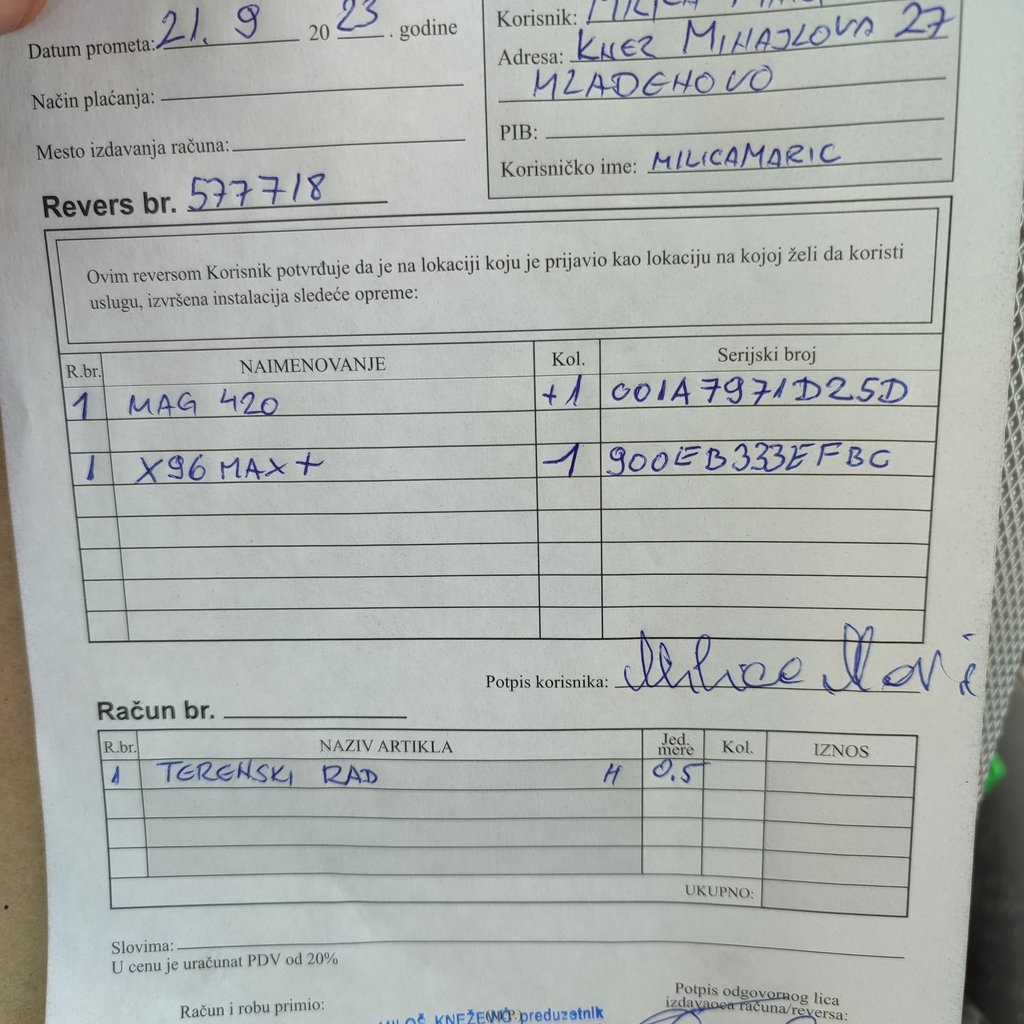 Datum prometa: 21. 9 2023. godine
Korisnik: MILICA
Adresa: KNEZ MIHAJLOVA 27
MLADENOVO
Način plaćanja:
PIB:
Mesto izdavanja računa:
Korisničko ime: MILICAMARIC
Revers br. 577718
Ovim reversom Korisnik potvrđuje da je na lokaciji koju je prijavio kao lokaciju na kojoj želi da koristi
uslugu, izvršena instalacija sledeće opreme:
R.br. NAIMENOVANJE Kol. Serijski broj
1 MAG 420 +1 001A7971D25D
1 X96 MAX+ -1 900EB333EFBC
Potpis korisnika: Milica Marić
Račun br.
R.br. NAZIV ARTIKLA Jed. mere Kol. IZNOS
1 TERENSKI RAD H 0.5
UKUPNO:
Slovima:
U cenu je uračunat PDV od 20%
Račun i robu primio:
(M.P.)
MILOŠ KNEŽEVIĆ preduzetnik
Potpis odgovornog lica
izdavaoca računa/reversa: